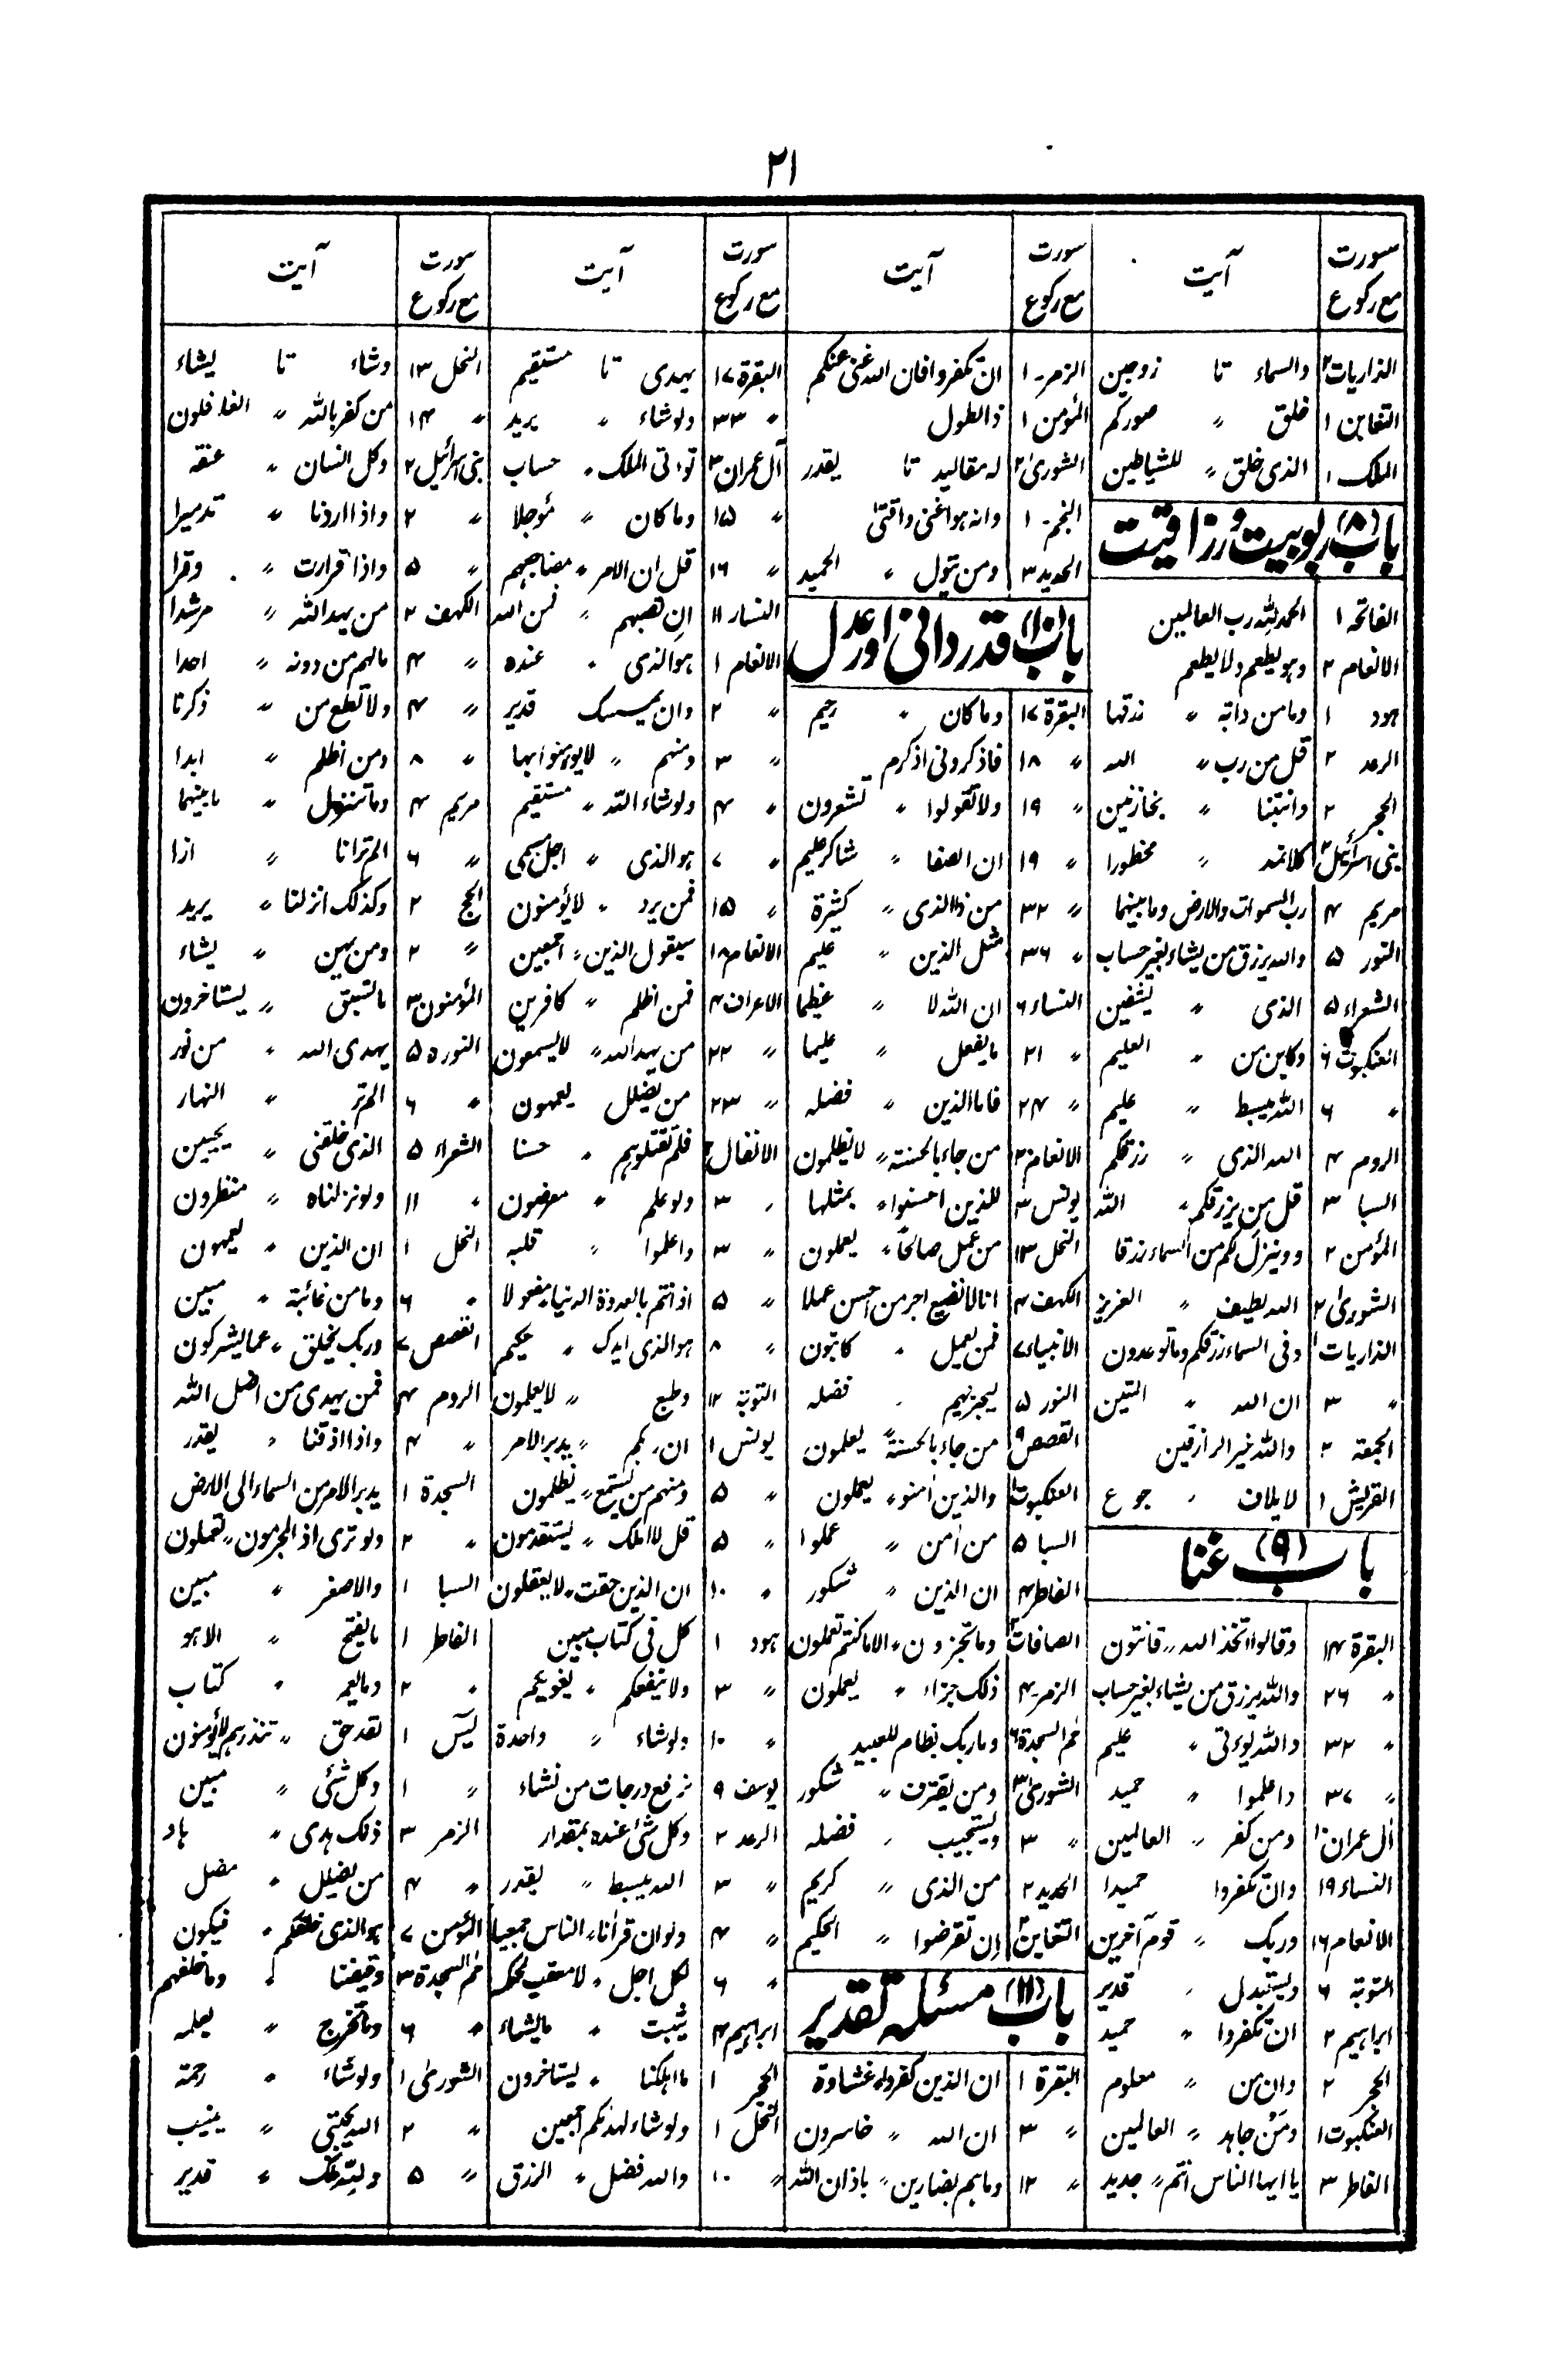 ۲۱
سورت مع رکوع آیت
الذاریات ۲ والسماء تا زوجین
التغابن ۱ خلق 〃 صورکم
الملک ۱ الذی خلق 〃 للشیاطین
باب (۸) ربوبیت و رزاقیت
الفاتحہ ۱ الحمد للہ رب العالمین
الانعام ۲ وہو یطعم ولا یطعم
ہود ۱ وما من دابۃ 〃 رزقہا
الرعد ۲ قل من رب 〃 اللہ
الحجر ۲ وانبتنا 〃 بخازنین
بنی اسرائیل ۲ کلا نمد 〃 محظورا
مریم ۴ رب السموات والارض وما بینہما
النور ۵ واللہ یرزق من یشاء بغیر حساب
الشعراء ۵ الذی 〃 یشفین
العنکبوت ۶ وکاین من 〃 العلیم
〃 ۶ اللہ یبسط 〃 علیم
الروم ۴ اللہ الذی 〃 رزقکم
السبا ۳ قل من یرزقکم 〃 اللہ
المؤمن ۲ وینزل لکم من السماء رزقا
الشوریٰ ۲ اللہ لطیف 〃 العزیز
الذاریات ۱ وفی السماء رزقکم وما توعدون
〃 ۳ ان اللہ 〃 المتین
الجمعۃ ۲ واللہ خیر الرازقین
القریش ۱ لایلاف 〃 جوع
باب (۹) غنا
البقرۃ ۱۴ وقالوا اتخذ اللہ 〃 قانتون
〃 ۲۶ واللہ یرزق من یشاء بغیر حساب
〃 ۳۲ واللہ یوتی 〃 علیم
〃 ۳۷ واعلموا 〃 حمید
آل عمران ۱۰ ومن کفر 〃 العالمین
النساء ۱۹ وان تکفروا حمیدا
الانعام ۱۶ وربک 〃 قوم آخرین
التوبۃ ۶ ویستبدل 〃 قدیر
ابراہیم ۲ ان تکفروا 〃 حمید
الحجر ۲ وان من 〃 معلوم
العنکبوت ۱ ومن جاہد 〃 العالمین
الفاطر ۳ یا ایہا الناس انتم 〃 جدید
سورت مع رکوع آیت
الزمر ۱ ان تکفروا فان اللہ غنی عنکم
المؤمن ۱ ذالطول
الشوریٰ ۲ لہ مقالید تا یقدر
النجم ۱ وانہ ہو اغنی واقنیٰ
الحدید ۳ ومن یتول 〃 الحمید
باب (۱۰) قدردانی اور عدل
البقرۃ ۱۷ وما کان 〃 رحیم
〃 ۱۸ فاذکرونی اذکرم
〃 ۱۹ ولا تقولوا 〃 تشعرون
〃 ۱۹ ان الصفا 〃 شاکر علیم
〃 ۳۲ من ذا الذی 〃 کثیرۃ
〃 ۳۶ مثل الذین 〃 علیم
النساء ۶ ان اللہ لا 〃 عظیما
〃 ۲۱ ما یفعل 〃 علیما
〃 ۲۴ فاما الذین 〃 فضلہ
الانعام ۲۰ من جاء بالحسنۃ 〃 لا یظلمون
یونس ۳ للذین احسنوا 〃 بمثلہا
النحل ۱۳ من عمل صالحا 〃 یعملون
الکہف ۴ انا لا نضیع اجر من احسن عملا
الانبیاء ۷ فمن یعمل 〃 کاتبون
النور ۵ لیجزیہم 〃 فضلہ
القصص ۹ من جاء بالحسنۃ 〃 یعلمون
العنکبوت والذین اٰمنوا 〃 یعملون
السبا ۵ من اٰمن 〃 عملوا
الفاطر ۴ ان الذین 〃 شکور
الصافات ۲ وما تجزون 〃 الا ما کنتم تعملون
الزمر ۴ ذلک جزاء 〃 یعملون
حٰم السجدۃ ۶ وما ربک بظلام للعبید
الشوریٰ ۳ ومن یقترف 〃 شکور
〃 ۳ ویستجیب 〃 فضلہ
الحدید ۲ من الذی 〃 کریم
التغابن ۲ ان تقرضوا 〃 الحکیم
باب (۱۱) مسئلہ تقدیر
البقرۃ ۱ ان الذین کفروا 〃 غشاوۃ
〃 ۳ ان اللہ 〃 خاسرون
〃 ۱۲ وما ہم بضارین 〃 باذن اللہ
سورت مع رکوع آیت
البقرۃ ۱۷ یہدی تا مستقیم
〃 ۳۳ ولو شاء 〃 یرید
آل عمران ۳ تو٠تی الملک 〃 حساب
〃 ۱۵ وما کان 〃 مؤجلا
〃 ۱۶ قل ان الامر 〃 مضاجعہم
النساء ۱۱ ان تصبہم 〃 فمن اللہ
الانعام ۱ ہو الذی 〃 عندہ
〃 ۲ وان یمسسک قدیر
〃 ۳ ومنہم 〃 لا یومنوا بہا
〃 ۴ ولو شاء اللہ 〃 مستقیم
〃 ۷ ہو الذی 〃 اجل مسمی
〃 ۱۵ فمن یرد 〃 لا یؤمنون
الانعام ۱۸ سیقول الذین 〃 اجمعین
الاعراف ۴ فمن اظلم 〃 کافرین
〃 ۲۲ من یہد اللہ 〃 لا یسمعون
〃 ۲۳ من یضلل یعمہون
الانفال فلم تقتلوہم 〃 حسنا
〃 ۳ ولو علم 〃 معرضون
〃 ۳ واعلموا 〃 قلبہ
〃 ۵ اذ انتم بالعدوۃ الدنیا 〃 مفعولا
〃 ۸ ہو الذی ایدک 〃 حکیم
التوبۃ ۱۲ وطبع 〃 لا یعلمون
یونس ۱ ان ربکم 〃 یدبر الامر
〃 ۵ ومنہم من یستمع 〃 یظلمون
〃 ۵ قل لا املک 〃 یستقدمون
〃 ۱۰ ان الذین حقت 〃 لا یعقلون
ہود ۱ کل فی کتاب مبین
〃 ۳ ولا ینفعکم 〃 یغویکم
〃 ۱۰ ولو شاء 〃 واحدۃ
یوسف ۹ نرفع درجات من نشاء
الرعد ۲ وکل شئ عندہ بمقدار
〃 ۳ اللہ یبسط 〃 یقدر
〃 ۴ ولو ان قرأنا 〃 الناس جمیعا
〃 ۶ لکل اجل 〃 لا معقب لحکمہ
ابراہیم ۴ یثبت 〃 ما یشاء
الحجر ۱ ما اہلکنا 〃 یستاخرون
النحل ۱ ولو شاء لہدٰکم اجمعین
〃 ۱۰ واللہ فضل 〃 الرزق
سورت مع رکوع آیت
النحل ۱۳ وشاء تا یشاء
〃 ۱۴ من کفر باللہ 〃 الغافلون
بنی اسرائیل ۲ وکل انسان 〃 عنقہ
〃 ۲ واذا اردنا 〃 تدمیرا
〃 ۵ واذا قرات 〃 وقرا
الکہف ۲ من یہد اللہ 〃 مرشدا
〃 ۴ مالہم من دونہ 〃 احدا
〃 ۴ ولا تطع من 〃 ذکرنا
〃 ۸ ومن اظلم 〃 ابدا
مریم ۴ وما تتنزل 〃 ما بینہما
〃 ۶ الم تر انا 〃 ازا
الحج ۲ وکذلک انزلنا 〃 یرید
〃 ۲ ومن یہن 〃 یشاء
المؤمنون ۳ ما تسبق 〃 یستاخرون
النور ۵ ۵ یہدی اللہ 〃 من نور
〃 ۶ الم تر 〃 النہار
الشعراء ۵ الذی خلقنی 〃 یحیین
〃 ۱۱ ولو نزلناہ 〃 منظرون
النحل ۱ ان الذین 〃 یعمہون
〃 ۶ وما من غائبۃ 〃 مبین
القصص ۷ وربک یخلق 〃 عما یشرکون
الروم ۴ فمن یہدی من اضل اللہ
〃 ۴ واذا اذقنا 〃 یقدر
السجدۃ ۱ یدبر الامر من السماء الی الارض
〃 ۲ ولو تری اذ المجرمون 〃 تعملون
السبا ۱ والاصغر 〃 مبین
الفاطر ۱ ما یفتح 〃 الا ہو
〃 ۲ وما یعمر 〃 کتاب
یٰس ۱ لقد حق 〃 تنذرہم لا یؤمنون
〃 ۱ وکل شئی 〃 مبین
الزمر ۳ ذلک ہدی 〃 ہاد
〃 ۴ من یضلل 〃 مضل
المؤمن ۷ ہو الذی خلقکم 〃 فیکون
حٰم السجدۃ ۳ وقیضنا 〃 وما خلفہم
〃 ۶ وما تخرج 〃 بعلمہ
الشوریٰ ۱ ولو شاء 〃 رحمۃ
〃 ۲ اللہ یجتبی 〃 ینیب
〃 ۵ وللہ ملک 〃 قدیر